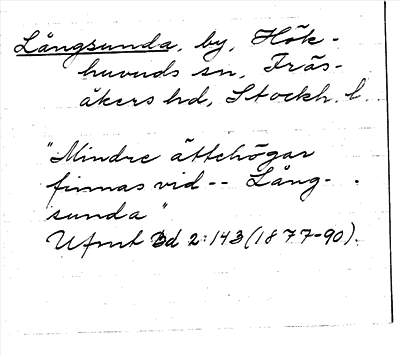 Långsunda, by, Hök-
huvuds sn, Fräs-
åkers hd, Stockh. l.
"Mindre ättehögar
finnas vid -- Lång-
sunda"
Ufmt Bd 2:143 (1877-90).